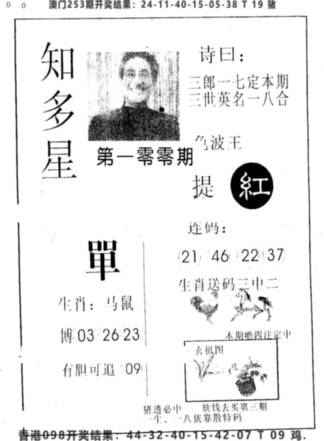 澳门253期开奖结果：24-11-40-15-05-38 T 19 猪
知多星
诗曰：
三郎一七定本期
三世英名一八合
第一零零期
色波王
提 紅
連码：
21 46 22 37
單
生肖：马鼠
博 03 26 23
有胆可追：09
生肖送码三中二
本期瞻四注定中
玄机图
猜透必中
放钱去买第三期
一生、一八依靠散特码
香港098开奖结果：44-32-40-15-42-07 T 09 鸡.